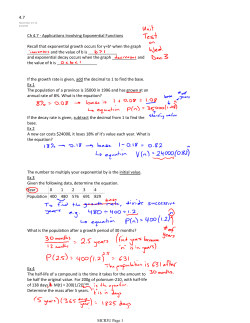 4.7
Ch 4.7 - Applications Involving Exponential Functions
Unit Test on Wed Dec 3
Recall that exponential growth occurs for y=bˣ when the graph
increases and the value of b is b > 1
and exponential decay occurs when the graph decreases and
the value of b is 0 < b < 1
If the growth rate is given, add the decimal to 1 to find the base.
Ex 1
The population of a province is 35000 in 1996 and has grown at an
annual rate of 8%. What is the equation?
8% → 0.08 → base is 1 + 0.08 = 1.08
↳ equation P(n) =
starting value
If the decay rate is given, subtract the decimal form 1 to find the
base.
Ex 2
A new car costs $24000. It loses 18% of it's value each year. What is
the equation?
18% → 0.18 → base 1 - 0.18 = 0.82
↳ equation V(n) = 24000(0.82)ⁿ
The number to multiply your exponential by is the initial value.
Ex 3
Given the following data, determine the equation.
Year 0 1 2 3 4
Population 400 480 576 691 829
To find the growth rate, divide successive
years e.g. 480 ÷ 400 = 1.2
↳ equation P(n) = 400(1.2)ⁿ
# of years
What is the population after a growth period of 30 months?
30 months
÷ 12 months = 2.5 years (find years because
'n' is in years)
P(2.5) = 400(1.2)^2.5
= 631
The population is 631 after
30 months.
Ex 4
The half-life of a compound is the time it takes for the amount to
be half the original value. For 200g of polonium-210, with half-life
Determine the mass after 5 years.
'n' is in days
(5 years)(365 days/year) = 1825 days
MCR3U Page 1